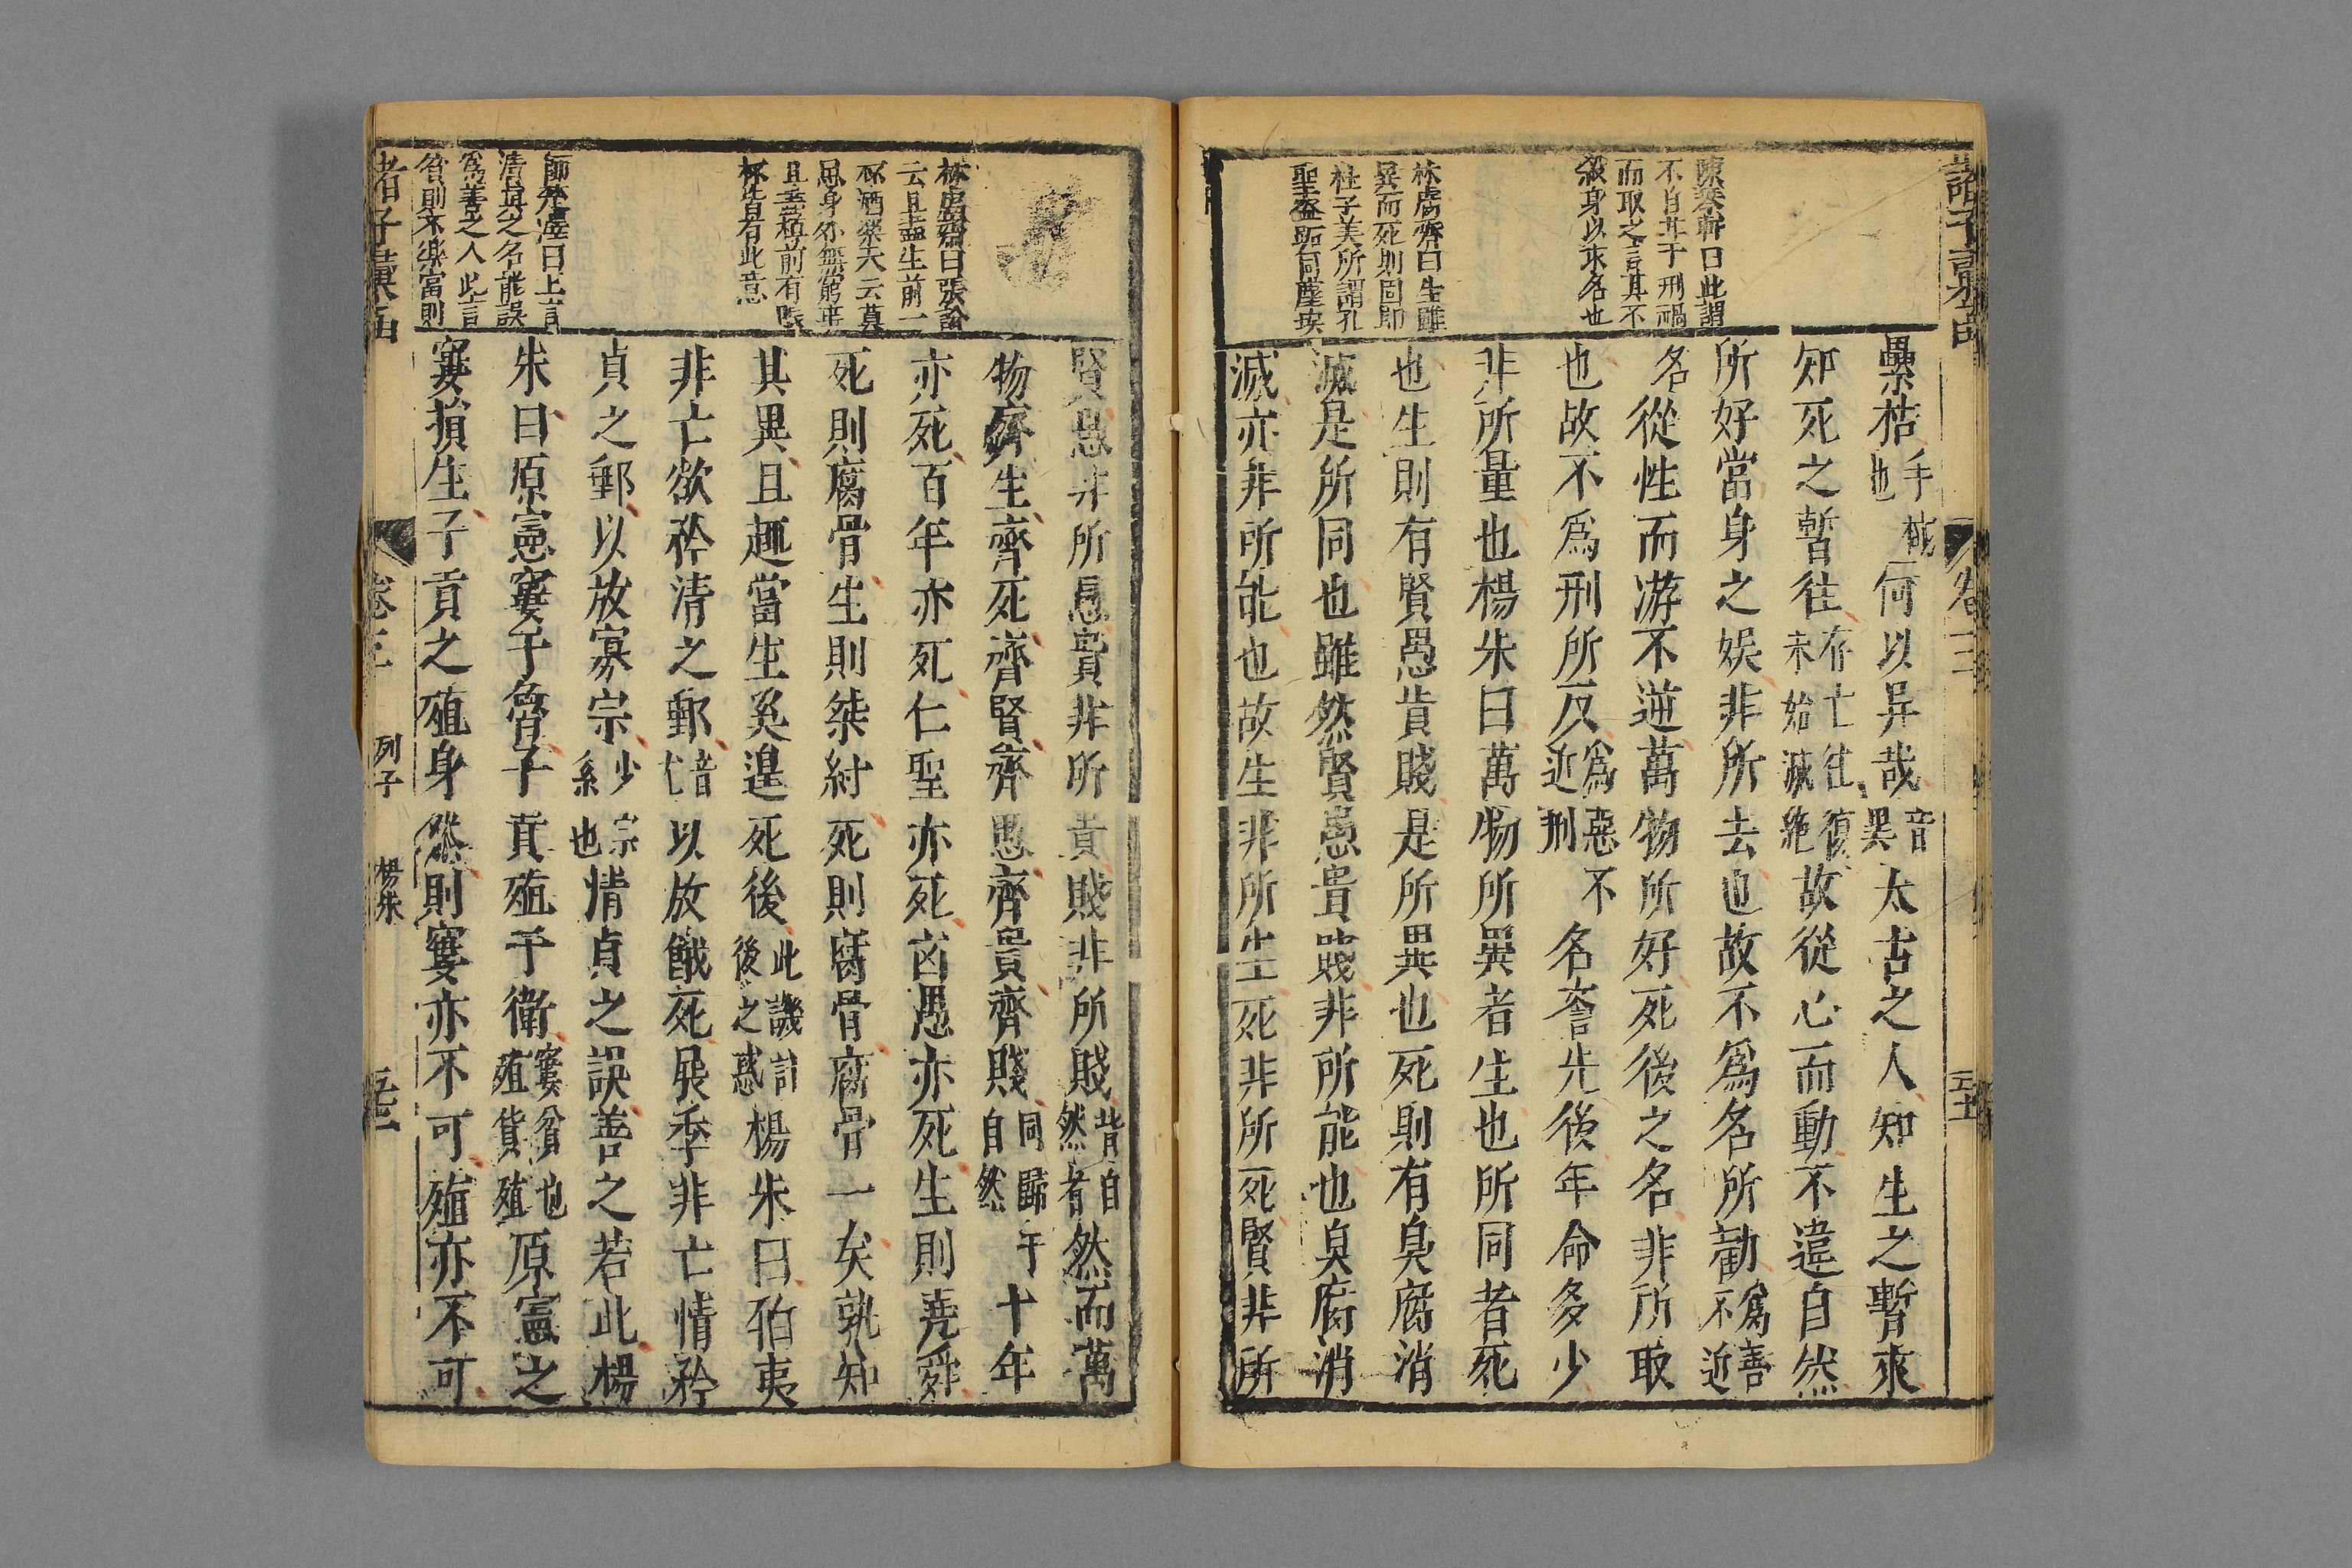 陳 軒曰此謂
不自 于刑禍
而取之 其不
殺身以求名也
林鬳齋曰生雖
異而死則同即
杜子美所謂孔
聖盜跖同塵埃
纍梏手械也何以异哉音異太古之人知生之暫來
知死之暫往存亡往復未始滅絶故從心而動不違自然
所好當身之娛非所去也故不爲名所勸爲善不近
名從性而游不逆萬物所好死後之名非所取
也故不爲刑所及爲惡不近刑名譽先後年命多少
非所量也楊朱曰萬物所異者生也所同者死
也生則有賢愚貴賤是所異也死則有臭腐消
滅是所同也雖然賢愚貴賤非所能也臭腐消
滅亦非所能也故生非所生死非所死賢非所
林鬳齋曰張翰
云且盡生前一
杯酒樂天云莫
思身外無窮事
且盡樽前有限
杯皆有此意
曰上言
清貞之名能誤
爲善之人此言
貧則不樂富則
賢愚非所愚貴非所貴賤非所賤皆自然者然而萬
物齊生齊死齊賢齊愚齊貴齊賤同歸于自然十年
亦死百年亦死仁聖亦死凶愚亦死生則堯舜
死則腐骨生則桀紂死則腐骨腐骨一矣孰知
其異且趣當生奚遑死後此譏計後之惑楊朱曰伯夷
非亡欲矜清之郵音尤以放餓死展季非亡情矜
貞之郵以放寡宗少宗系也情貞之誤善之若此楊
朱曰原憲窶于魯子貢殖于衛窶貧也殖貨殖原憲之
窶損生子貢之殖身然則窶亦不可殖亦不可
諸子彙函
卷三
列子
楊朱